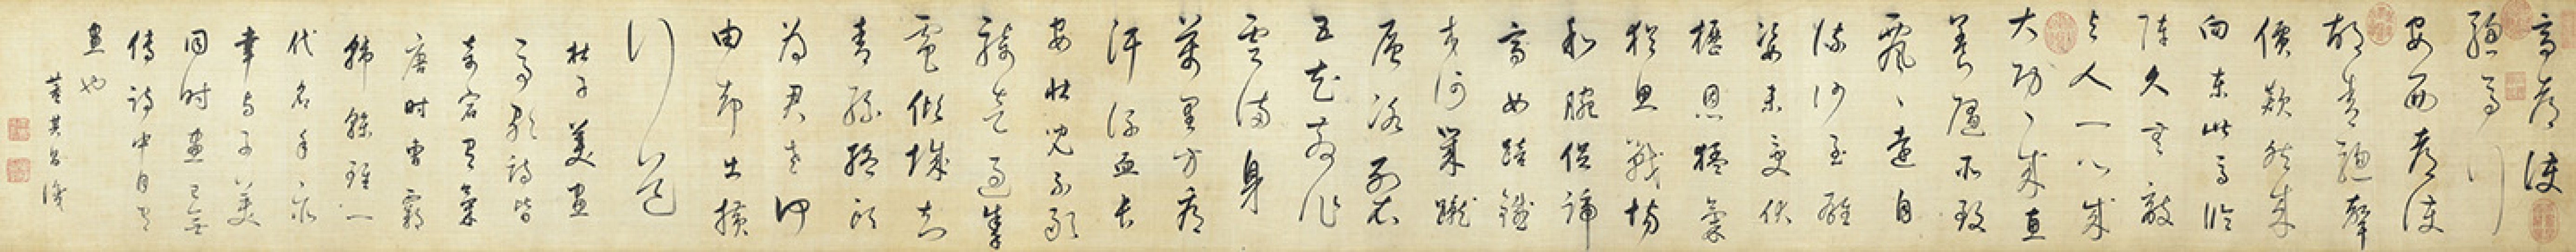 高都護
驄馬行
安西都護
胡青驄聲
價欻然來
向東此馬臨
陣久無敵
與人一心成
大功功成惠
養隨所致
飄飄遠自
流沙至雄
姿未受伏
櫪恩猛氣
猶思戰場
利腕促蹄
高如踣鐵
交河幾蹴
層冰裂
五花散作
雲滿身
萬里方看
汗流血長
安壯兒不敢
騎走過掣
電傾城知
青絲絡頭
為君老何
由却出橫
門道
杜子美畫
馬歌詩皆
奇宕有氣
唐時曹霸
韓幹雖一
代名手亦
幸與子美
同時畫已無
傳詩中自有
畫也
董其昌識